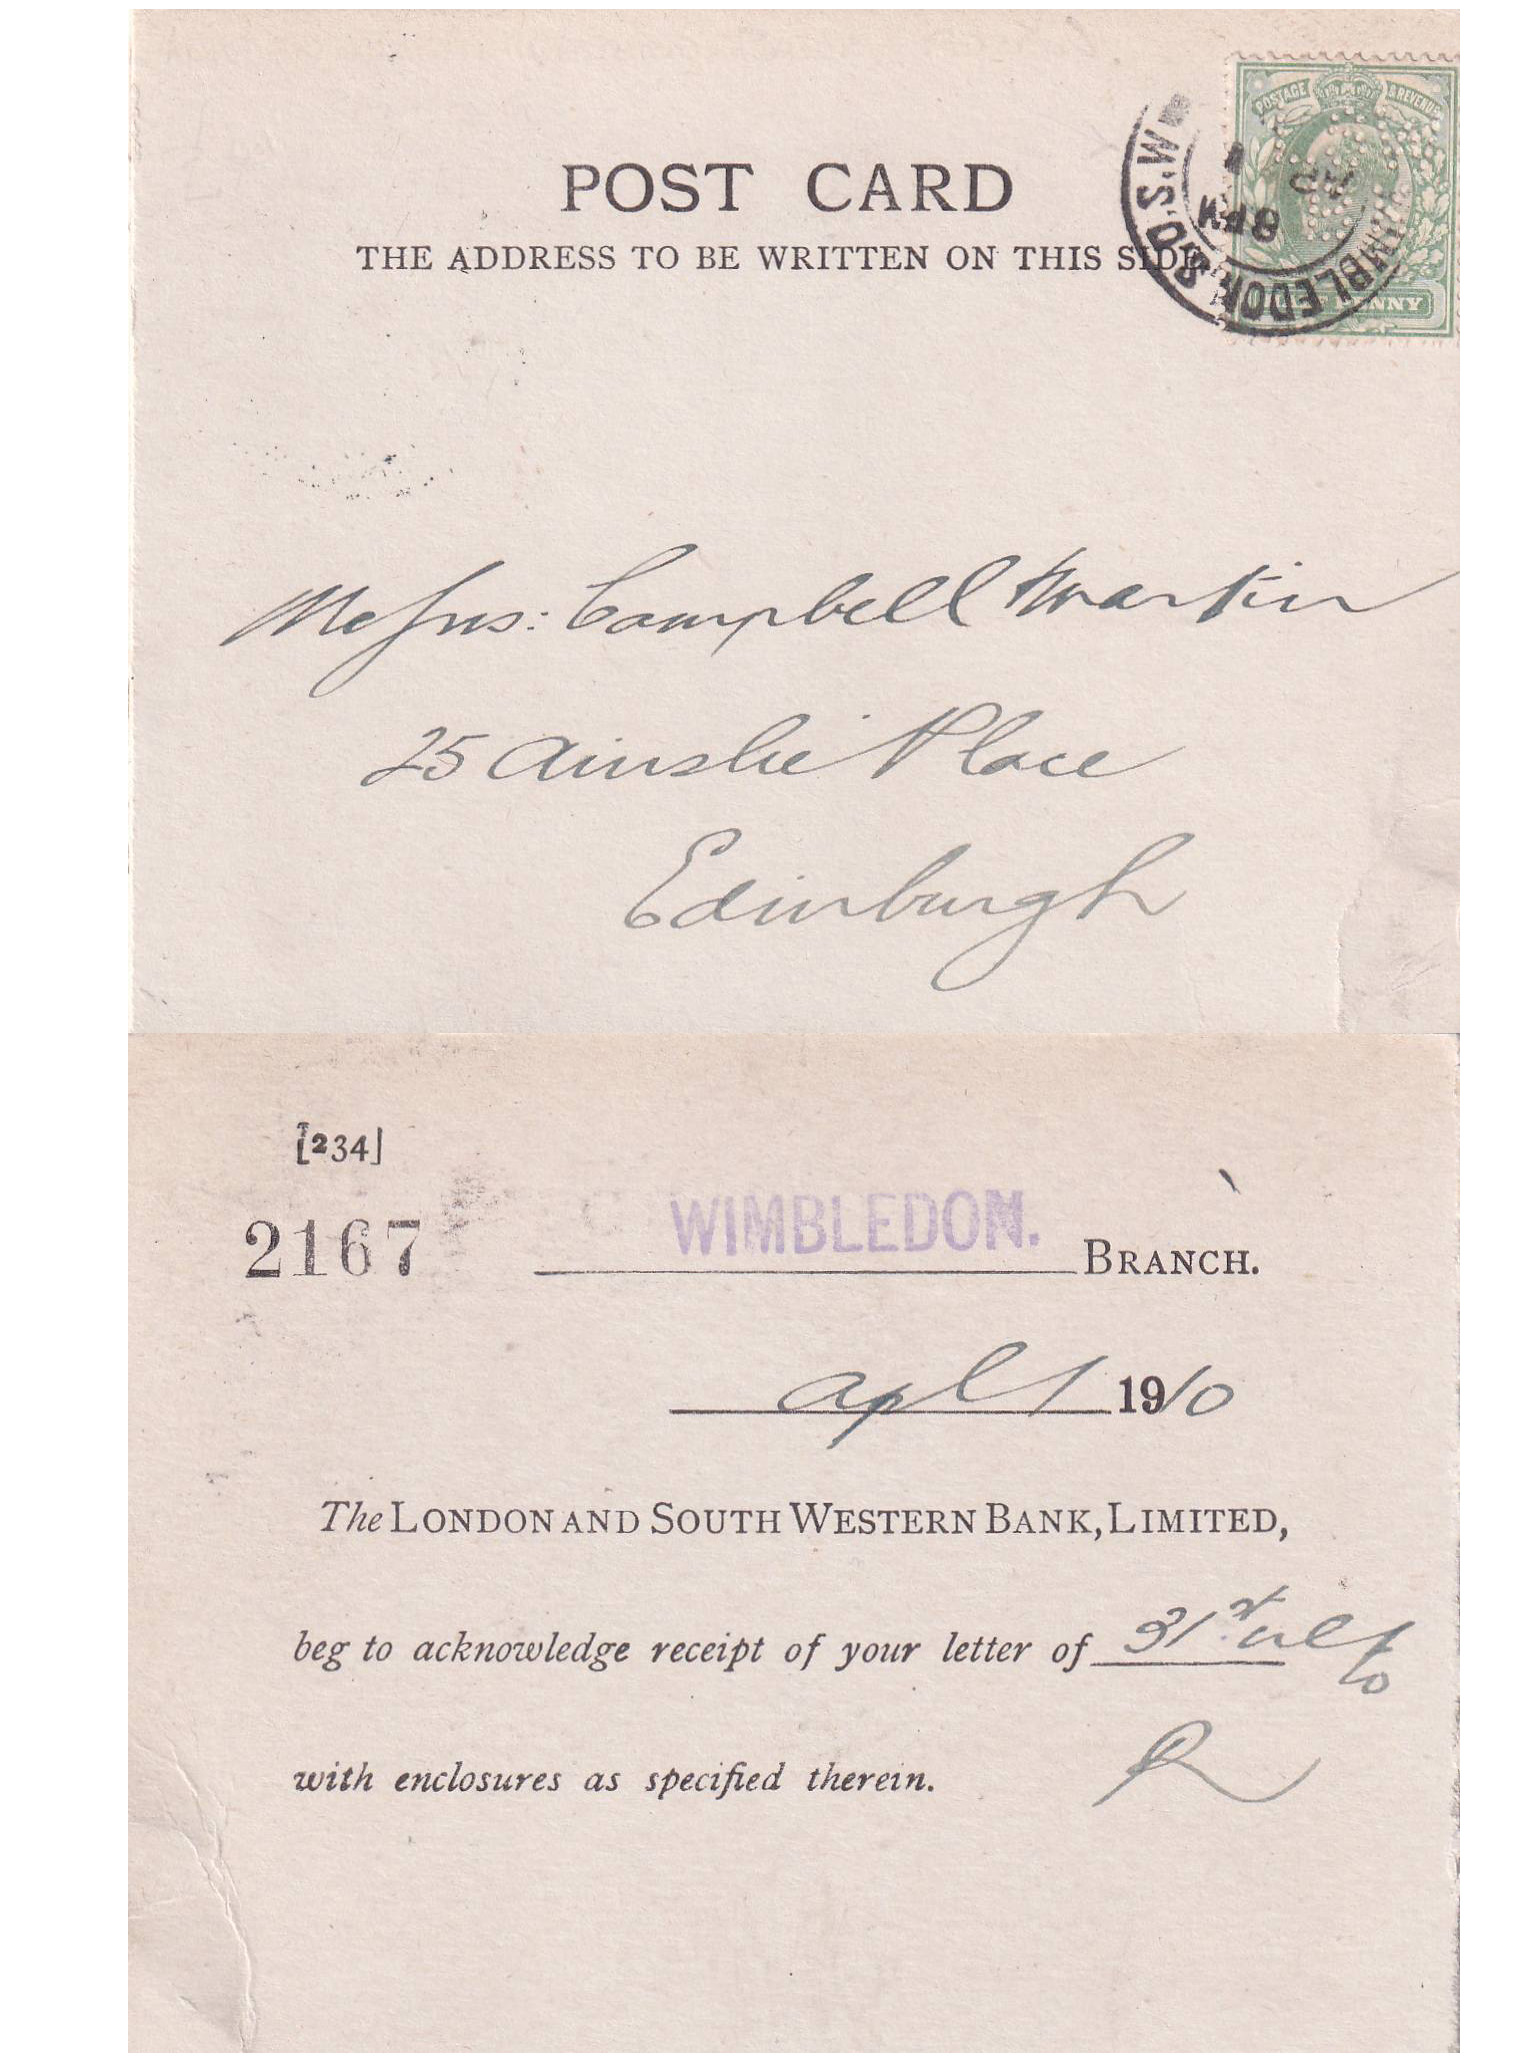 POST CARD
THE ADDRESS TO BE WRITTEN ON THIS SIDE
POSTAGE & REVENUE
PENNY
WIMBLEDON S.O. S.W
8 PM
AP
1
Messrs: Campbell Martin
25 Ainslie Place
Edinburgh
[234]
2167 WIMBLEDON. BRANCH.
Apl 1 1910
The LONDON AND SOUTH WESTERN BANK, LIMITED,
beg to acknowledge receipt of your letter of 31st ulto
with enclosures as specified therein. R